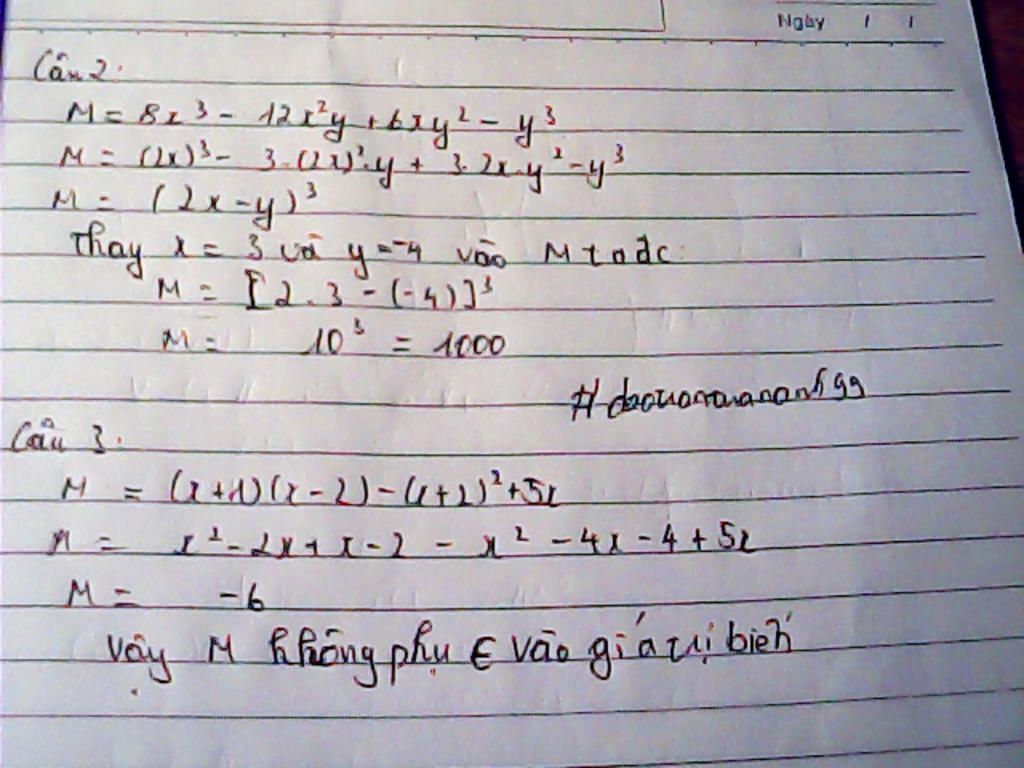 Ngày / /
Câu 2.
M = 8x³ - 12x²y + 6xy² - y³
M = (2x)³ - 3.(2x)².y + 3.2x.y² - y³
M = (2x - y)³
Thay x = 3 và y = -4 vào M t a đc:
M = [2.3 - (-4)]³
M = 10³ = 1000
Câu 3.
M = (x+1)(x-2) - (x+2)² + 5x
M = x² - 2x + x - 2 - x² - 4x - 4 + 5x
M = -6
Vậy M không phụ ∈ vào giá trị biến